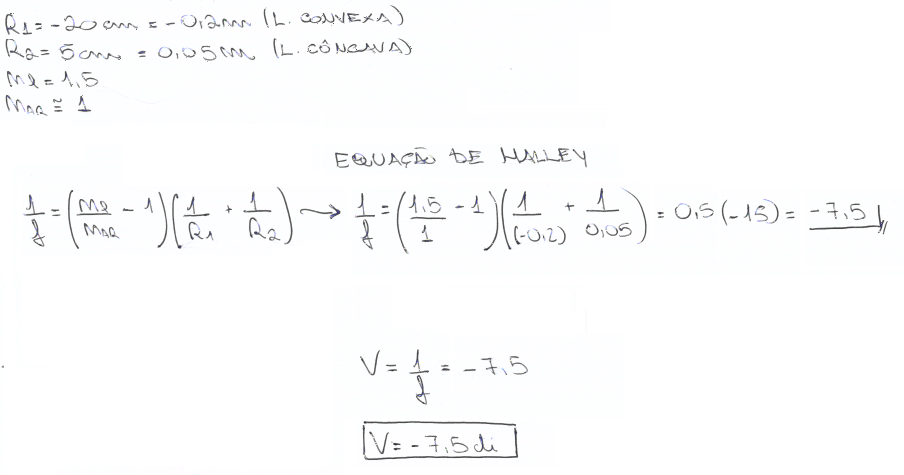 R1 = -20cm = -0,2m (L. CONVEXA)
R2 = 5cm = 0,05m (L. CÔNCAVA)
nl = 1,5
nAR ≅ 1
EQUAÇÃO DE HALLEY
1/f = (nl/nAR - 1)(1/R1 + 1/R2) → 1/f = (1,5/1 - 1)(1/(-0,2) + 1/0,05) = 0,5(-15) = -7,5
V = 1/f = -7,5
V = -7,5 di